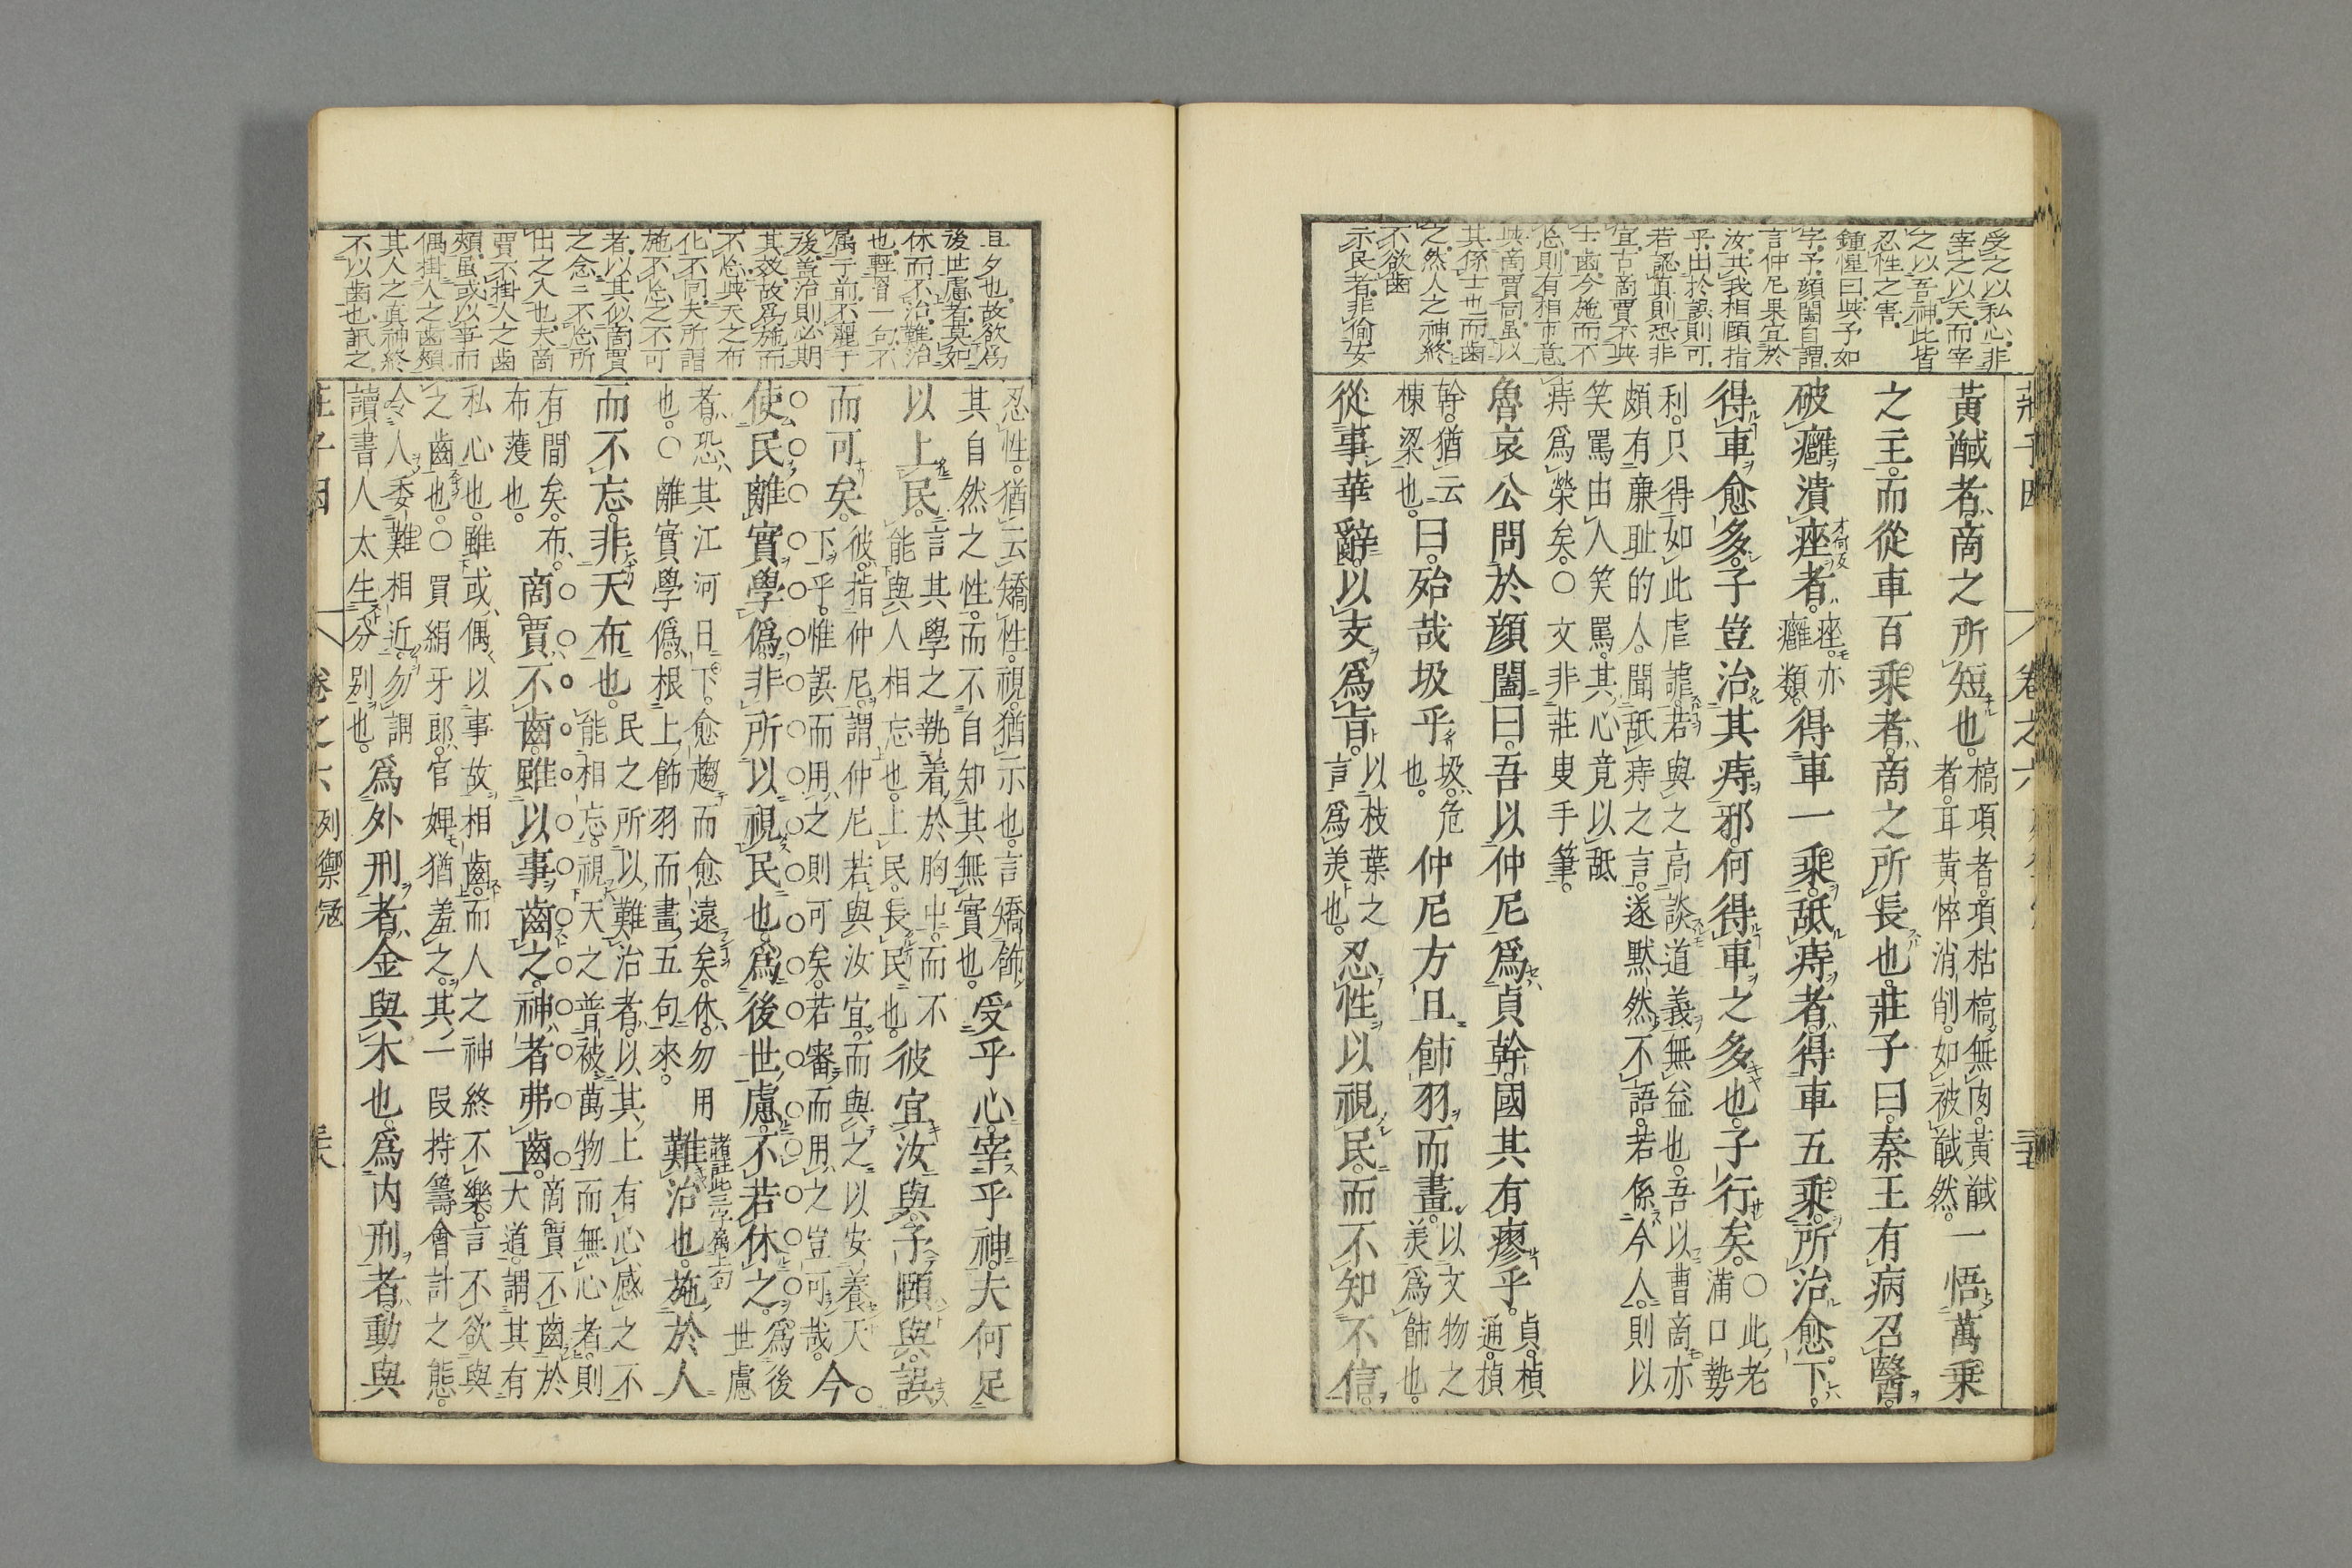 受之以私心非
宰之以天而宰
之以吾神此皆
忍性之害
鍾惺曰與予如
字予顔闔自謂
言仲尼果宜於
汝共我相頤指
乎出於誤則可
若認真則恐非
宜古商賈不與
士齒今施而不
忘則有相市意
與商賈同虽以
其係士也而齒
之然人之神終
不欲齒
示民者非偷安
黃馘者。商之所短也。槁項者。項枯槁無肉。黃馘者。耳黃悴消削。如被馘然。一悟萬乗
之主。而從車百乘者。商之所長也。莊子曰。秦王有病召醫。
破癰潰痤者。痤。亦癰類。得車一乘。舐痔者。得車五乘。所治愈下。
得車愈多。子豈治其痔邪。何得車之多也。子行矣。○此老滿口勢
利。只得如此虐謔。若與之高談道義。無益也。吾以曹商亦
頗有亷耻的人。聞舐痔之言。遂黙然不語。若係今人。則以
笑罵由人笑罵。其心竟以舐
痔爲榮矣。○文非莊叟手筆。
魯哀公問於顔闔曰。吾以仲尼爲貞幹。國其有瘳乎。貞。楨通。楨
幹。猶云棟梁也。曰。殆哉圾乎圾。危也。仲尼方且飾羽而畫。以文物之美爲飾也。
從事華辭。以支爲旨。以枝葉之言爲美也。忍性以視民。而不知不信。
莊子因 卷之六
且夕也故欲爲
後世慮者莫如
休而不治難治
也輕冒一句不
属于前不麗于
後蓋治則必期
其效故爲施而
不忘與天之布
化不同夫所謂
施不忘之不可
者以其似商賈
之念二不忘所
出之入也夫商
賈不掛人之齒
頰虽或以事而
偶掛人之齒頰
其人之真神終
不以齒也訊之
忍性。猶云矯性。視。猶示也。言矯飾其自然之性。而不自知其無實也。受乎心。宰乎神。夫何足
以上民。言其學之執着於胸中。而不能與人相忘也。上民。長民也。彼宜汝與予頤與。誤
而可矣。彼。指仲尼。謂仲尼若與汝宜。而與之以安養天下乎。惟誤而用之則可矣。若審而用之。豈可哉。今
使民離實學僞。非所以視民也。爲後世慮。不若休之。爲後世慮
者。恐其江河日下。愈趨而愈遠矣。休。勿用也。○離實學僞。根上飾羽而畫五句來。難治也。諸註此三字屬上句施於人
而不忘。非天布也。民之所以難治者。以其上有心感之。不能相忘。視天之普被萬物而無心者。則
有間矣。布。布蓡也。商賈不齒。雖以事齒之。神者弗齒。商賈不齒於大道。謂其有
私心也。雖或偶以事故相齒。而人之神終不樂。言不欲與
之齒也。○買絹牙郎。官婢猶羞之。其一叚持籌會計之態。
令人委難相近。勿謂讀書人太生分别也。爲外刑者。金與木也。爲内刑者。動與
莊子因 卷之六 列禦冦